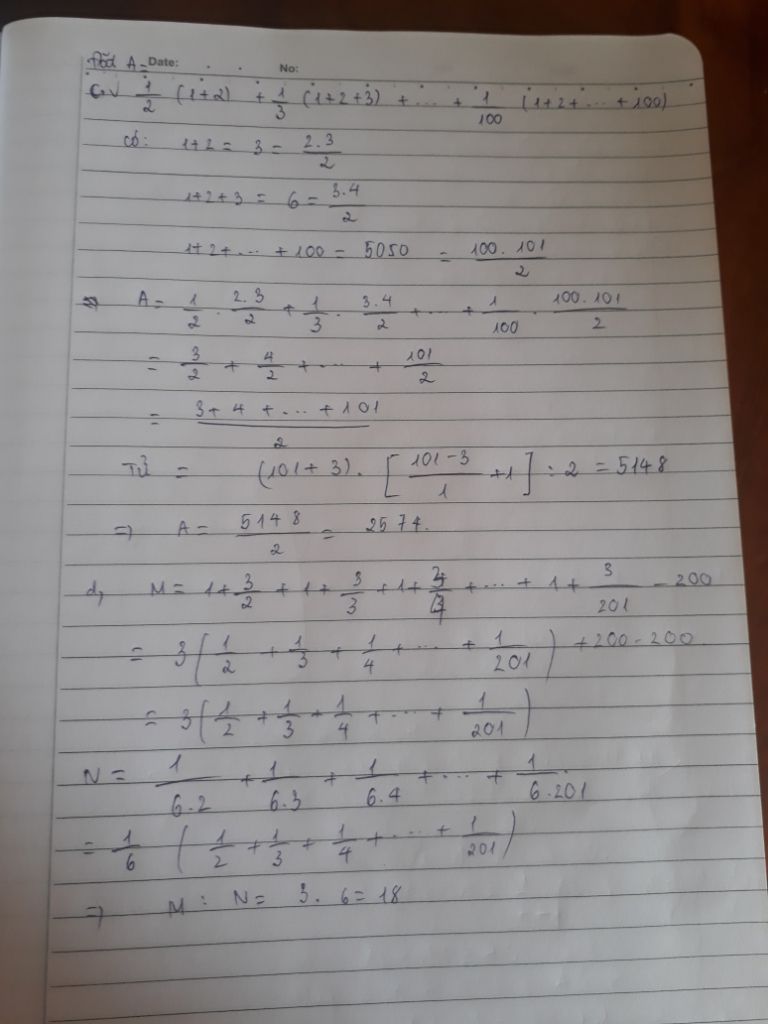 Đặt A = Date: . . No:
c, 1/2 (1+2) + 1/3 (1+2+3) + ... + 1/100 (1+2+ ... +100)
có: 1+2 = 3 = 2.3/2
1+2+3 = 6 = 3.4/2
1+2+ ... + 100 = 5050 = 100.101/2
=> A = 1/2 . 2.3/2 + 1/3 . 3.4/2 + ... + 1/100 . 100.101/2
= 3/2 + 4/2 + ... + 101/2
= 3+4+ ... +101/2
Tử = (101+3). [101-3/1 +1] : 2 = 5148
=> A = 5148/2 = 2574.
d, M = 1+3/2 + 1+3/3 + 1+3/4 + ... + 1+3/201 - 200
= 3(1/2 + 1/3 + 1/4 + ... + 1/201) +200-200
= 3(1/2 + 1/3 + 1/4 + ... + 1/201)
N = 1/6.2 + 1/6.3 + 1/6.4 + ... + 1/6.201
= 1/6 (1/2 + 1/3 + 1/4 + ... + 1/201)
=> M : N = 3.6 = 18